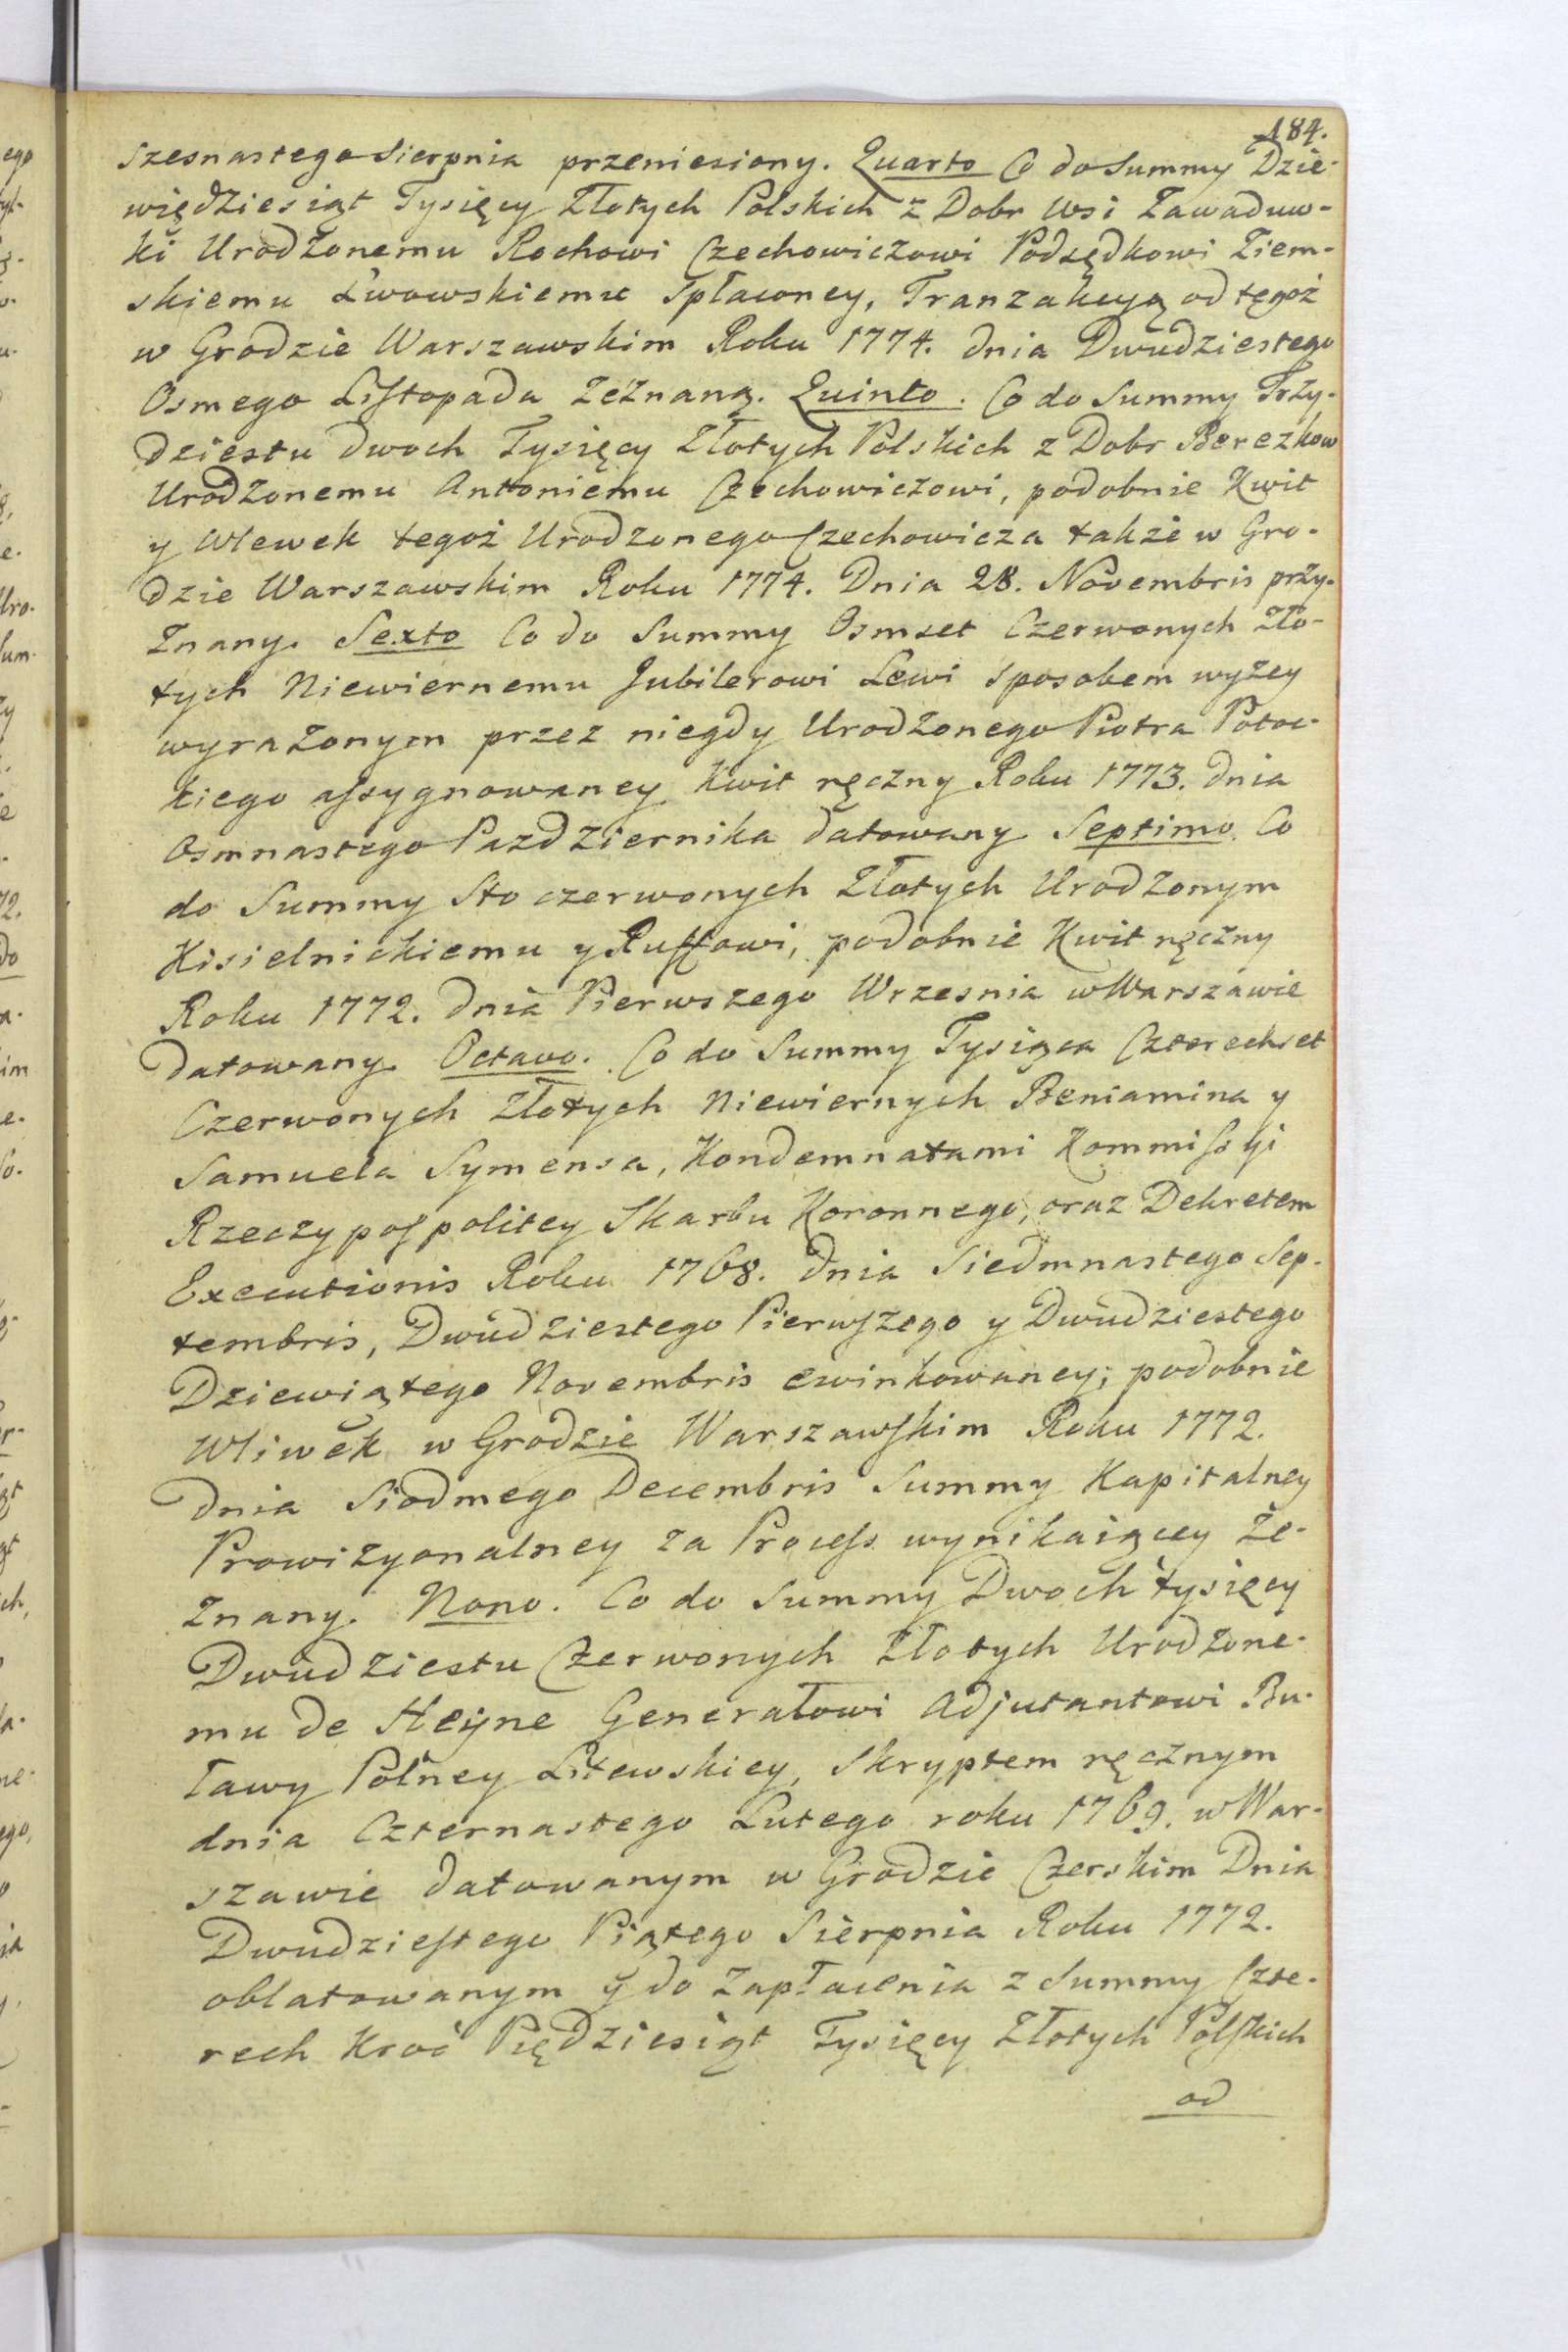 184.
szesnastego Sierpnia przeniesiony. Quarto Co do Summy Dzie-
więdziesiąt Tysięcy Złotych Polskich z Dobr Wsi Zawaduw-
ki Urodzonemu Rochowi Czechowiczowi Podsędkowi Ziem-
skiemu Lwowskiemu Spłaconey, Tranzakcyą od tęgoż
w Grodzie Warszawskim Roku 1774. dnia Dwudziestego
Osmego Listopada zeznaną. Quinto. Co do Summy Trzy-
dziestu dwoch Tysięcy Złotych Polskich z Dobr Berezkow
Urodzonemu Antoniemu Czechowiczowi, podobnie Kwit
y Wlewek tegoż Urodzonego Czechowicza także w Gro-
dzie Warszawskim Roku 1774. Dnia 28. Novembris przy-
znany. Sexto Co do Summy Osmset Czerwonych Zło-
tych Niewiernemu Jubilerowi Lewi sposobem wyżey
wyrażonym przez niegdy Urodzonego Piotra Potoc-
kiego assygnowaney Kwit ręczny Roku 1773. dnia
Osmnastego Pazdziernika datowany Septimo Co
do Summy Sto czerwonych Złotych Urodzonym
Kisielnickiemu y Ruffowi, podobnie Kwit ręczny
Roku 1772. dnia Pierwszego Wrzesnia w Warszawie
datowany. Octavo. Co do Summy Tysiąca Czterechset
Czerwonych Złotych Niewiernych Beniamina y
Samuela Symensa, Kondemnatami Kommissyi
Rzeczypospolitey Skarbu Koronnego, oraz Dekretem
Executionis Roku 1768. dnia Siedmnastego Sep-
tembris, Dwudziestego Pierwszego y Dwudziestego
Dziewiątego Novembris ewinkowaney; podobnie
Wliwek w Grodzie Warszawskim Roku 1772.
dnia Siodmego Decembris Summy Kapitalney
Prowizyonalney za Process wynikaiącey ze-
znany. Nono. Co do Summy Dwoch tysięcy
Dwudziestu Czerwonych Złotych Urodzone-
mu de Heyne Generałowi Adjutantowi Bu-
ławy Polney Litewskiey, Skryptem ręcznym
dnia Czternastego Lutego roku 1769. w War-
szawie datowanym w Grodzie Czerskim Dnia
Dwudziestego Piątego Sierpnia Roku 1772.
oblatowanym y do Zapłacenia z Summy Czte-
rech Kroć Piędziesiąt Tysięcy Złotych Polskich
od